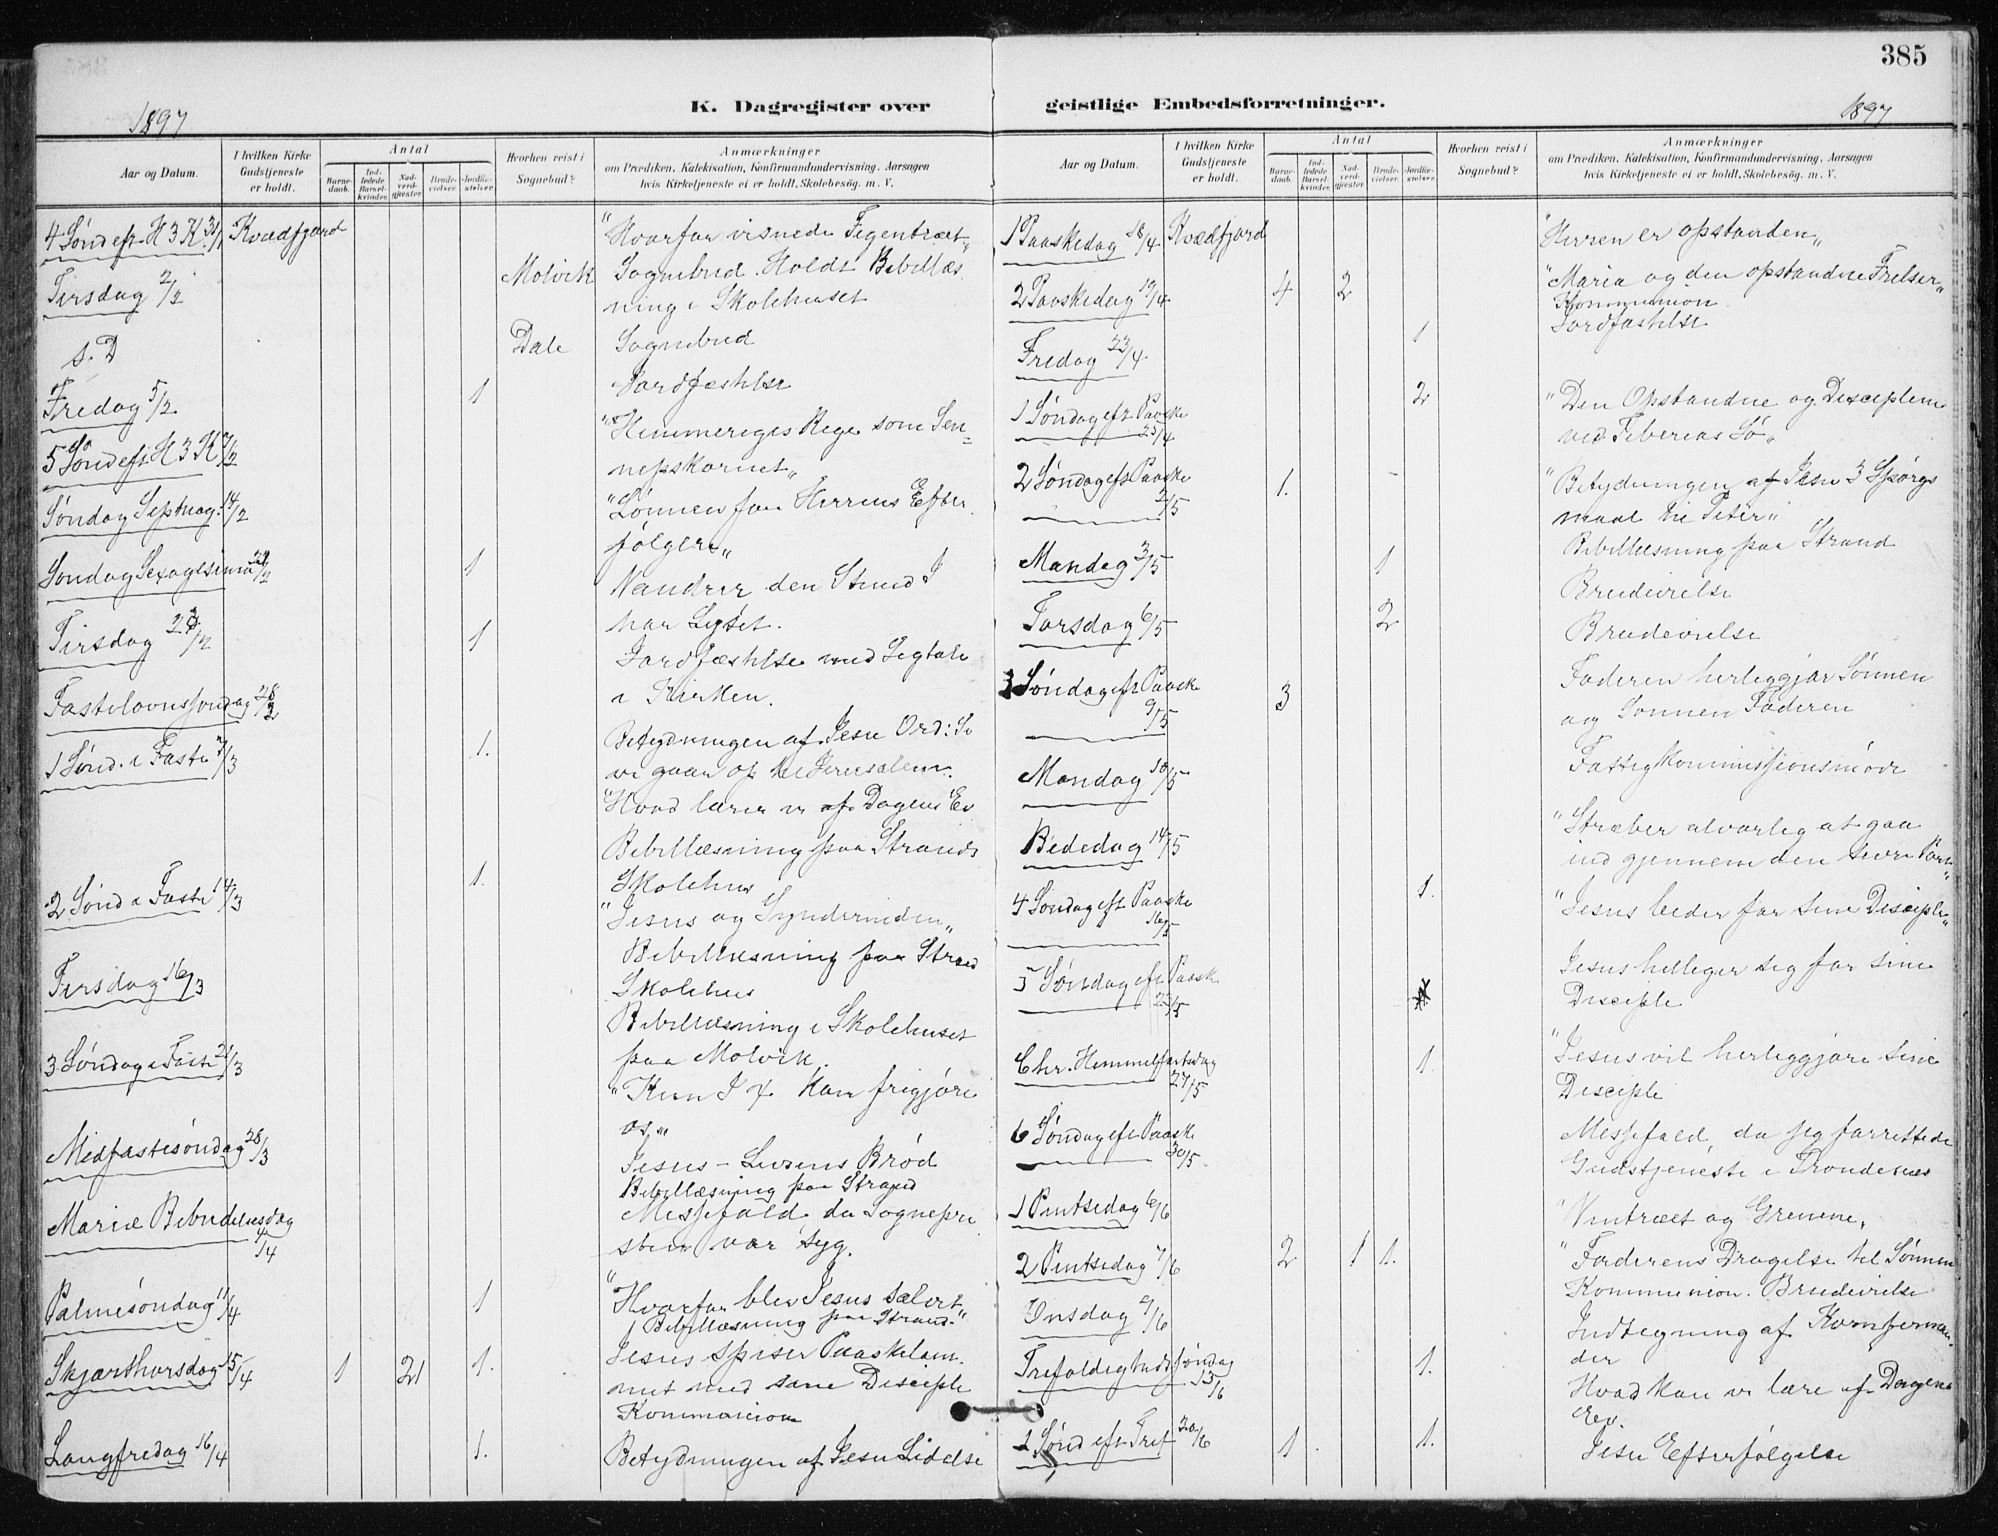 385
1897
K. Dagregister over
Aar og Datum.
I hvilken Kirke Gudstjeneste er holdt.
Antal
Barnedaab.
Indledede Barselkvinder.
Nadverdgjester.
Brudevielser.
Jordfæstelser.
Hvorhen reist i Sognebud?
Anmærkninger
om Prædiken, Katekisation, Konfirmandundervisning, Aarsagen
hvis Kirketjeneste ei er holdt, Skolebesøg. m. V.
4 Sønd eft. H 3 K 31/1 Kvædfjord "Hvorfor visnede Figentræet"
Tirsdag 2/2 Molvik Sognebud. Holdt Bibellæs
ning i Skolehuset
s. D Dale Sognebud
Fredag 5/2 1 Jordfæstelse
5 Sønd eft. H 3 K 7/2 "Himmeriges Rige som Sen=
nepskornet"
Søndag Septuag. 14/2 "Lønnen for Herrens Efter
følgere"
Søndag Sexagesima 21/2 1 Vandrer den Stund I
har Lyset.
Tirsdag 23/2 1 Jordfæstelse med Ligtale
i Kirken.
Fastelavnssøndag 28/2 Betydningen af Jesu Ord: Se
vi gaar op til Jerusalem.
1 Sønd. i Faste 7/3 1. "Hvad lærer vi af Dagens Ev
Bibellæsning paa Strands
Skolehus
2 Sønd i Faste 14/3 1. "Jesus og Synderinden"
Bibellæsning paa Strand
Skolehus
Tirsdag 16/3 Bibellæsning i Skolehuset
paa Molvik.
3 Søndag i Faste 21/3 "Kun J X kan frigjøre
os"
Midfastesøndag 28/3 Jesus - Livsens Brød
Bibellæsning paa Strand
Mariæ Bebudelsesdag 4/4 Messefald da Sognepre
sten var syg.
Palmesøndag 11/4 1 "Hvorfor blev Jesus salvet"
Bibellæsning paa Strand
Skjærthorsdag 15/4 1 21 1. Jesus spiser Paaskelam
met med sine Disciple
Kommunion
Langfredag 16/4 1. Betydningen af Jesu Lidelse
geistlige Embedsforretninger.
1897
Aar og Datum.
I hvilken Kirke Gudstjeneste er holdt.
Antal
Barnedaab.
Indledede Barselkvinder.
Nadverdgjester.
Brudevielser.
Jordfæstelser.
Hvorhen reist i Sognebud?
Anmærkninger
om Prædiken, Katekisation, Konfirmandundervisning, Aarsagen
hvis Kirketjeneste ei er holdt, Skolebesøg. m. V.
1 Paaskedag 18/4 Kvædfjord "Herren er opstanden"
2 Paaskedag 19/4 4 2 "Maria og den opstandne Frelser"
Kommunion
Fredag 23/4 1 Jordfæstelse
1 Søndag eft Paaske 25/4 2 "Den Opstandne og Disciplene
ved Tiberias Sø"
2 Søndag eft Paaske 2/5 1. "Betydningen af Jesu 3 Spørgs
maal til Peter"
Bibellæsning paa Strand
Mandag 3/5 1 Brudevielse
Torsdag 6/5 2 Brudevielse
3 Søndag eft Paaske 9/5 3 Faderen herliggjør Sønnen
og Sønnen Faderen
Mandag 10/5 Fattigkommissionsmøde
Bededag 14/5 "Stræber alvorlig at gaa
ind gjennem den snevre Port"
4 Søndag eft Paaske 16/5 1. "Jesus beder for sine Disciple"
5 Søndag eft Paaske 23/5 Jesus helliger sig for sine
Disciple
Chr. Himmelfartsdag 27/5 1. "Jesus vil herliggjøre sine
Disciple
6 Søndag eft Paaske 30/5 Messefald, da jeg forrettede
Gudstjeneste i Trondenæs
1 Pintsedag 6/6 "Vintræet og Grenene,
2 Pintsedag 7/6 2 1 1. "Faderens Dragelse til Sønnen
Kommunion. Brudevielse
Onsdag 9/6 Indtegning af Konfirman
der
Trefoldighedssøndag 13/6 1. Hvad kan vi lære af Dagens
Ev.
1 Sønd eft Tref 20/6 1 1. Jesu Efterfølgelse